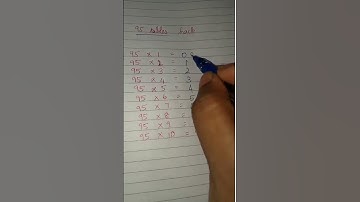 95 tables hack
95 × 1 = 0
95 × 2 = 1
95 × 3 = 2
95 × 4 = 3
95 × 5 = 4
95 × 6 = 5
95 × 7 =
95 × 8 =
95 × 9 =
95 × 10 =